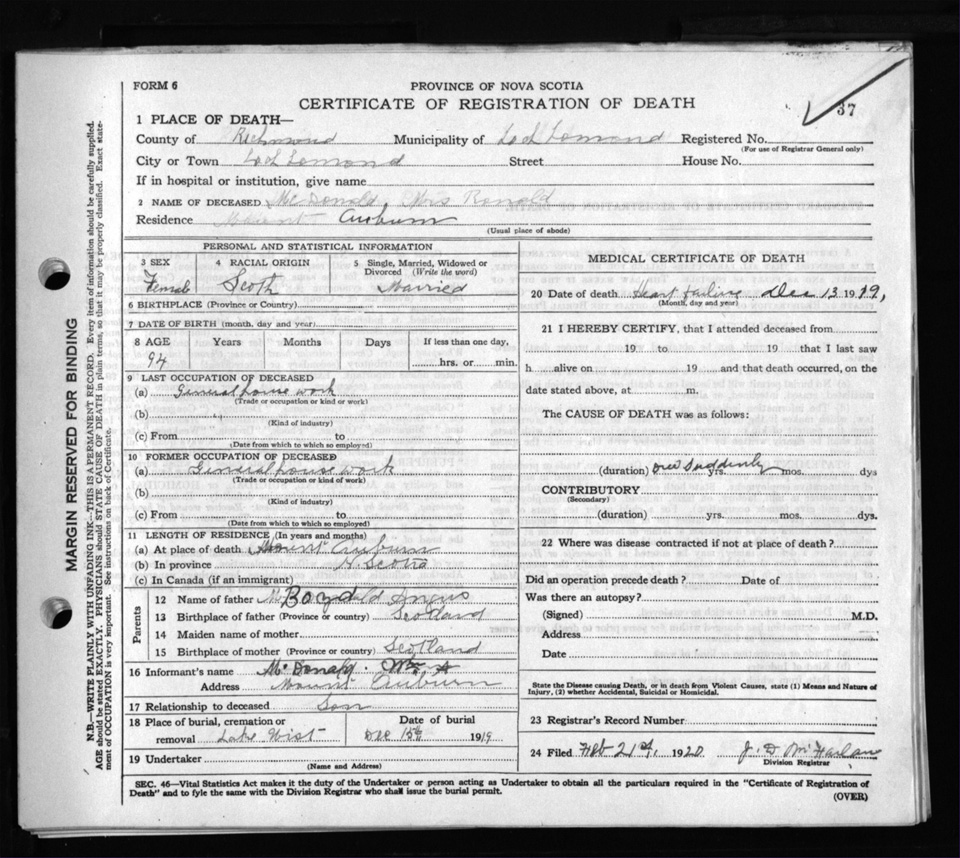 FORM 6
PROVINCE OF NOVA SCOTIA
CERTIFICATE OF REGISTRATION OF DEATH
37
1 PLACE OF DEATH—
County of Richmond Municipality of Loch Lomond Registered No.
(For use of Registrar General only)
City or Town Loch Lomond Street House No.
If in hospital or institution, give name
2 NAME OF DECEASED McDonald Mrs Ronald
Residence Mount Auburn
(Usual place of abode)
PERSONAL AND STATISTICAL INFORMATION
3 SEX Female
4 RACIAL ORIGIN Scoth
5 Single, Married, Widowed or Divorced (Write the word) Married
6 BIRTHPLACE (Province or Country)
7 DATE OF BIRTH (month, day and year)
8 AGE Years Months Days If less than one day,
94 hrs. or min.
9 LAST OCCUPATION OF DECEASED
(a) General house work
(Trade or occupation or kind or work)
(b)
(Kind of industry)
(c) From to
(Date from which to which so employed)
10 FORMER OCCUPATION OF DECEASED
(a) General house work
(Trade or occupation or kind of work)
(b)
(Kind of industry)
(c) From to
(Date from which to which so employed)
11 LENGTH OF RESIDENCE (In years and months)
(a) At place of death Mount Auburn
(b) In province N. Scotia
(c) In Canada (if an immigrant)
Parents
12 Name of father Angus
13 Birthplace of father (Province or country) Scotland
14 Maiden name of mother
15 Birthplace of mother (Province or country) Scotland
16 Informant's name McDonald. A
Address Mount Auburn
17 Relationship to deceased Son
18 Place of burial, cremation or removal Lake Uist
Date of burial Dec 15th 1919
19 Undertaker
(Name and Address)
MEDICAL CERTIFICATE OF DEATH
20 Date of death Heart Failure Dec 13 1919,
(Month, day and year)
21 I HEREBY CERTIFY, that I attended deceased from
19 to 19 that I last saw
h alive on 19 and that death occurred, on the
date stated above, at m.
The CAUSE OF DEATH was as follows:
(duration) suddenly yrs. mos. dys
CONTRIBUTORY
(Secondary)
(duration) yrs. mos. dys.
22 Where was disease contracted if not at place of death?
Did an operation precede death? Date of
Was there an autopsy?
(Signed) M.D.
Address
Date
State the Disease causing Death, or in death from Violent Causes, state (1) Means and Nature of
Injury, (2) whether Accidental, Suicidal or Homicidal.
23 Registrar's Record Number
24 Filed Feb 21st, 1920 J. D. McFarlane
Division Registrar
SEC. 46—Vital Statistics Act makes it the duty of the Undertaker or person acting as Undertaker to obtain all the particulars required in the "Certificate of Registration of
Death" and to fyle the same with the Division Registrar who shall issue the burial permit.
(OVER)
MARGIN RESERVED FOR BINDING
N.B.—WRITE PLAINLY WITH UNFADING INK—THIS IS A PERMANENT RECORD. Every item of information should be carefully supplied.
AGE should be stated EXACTLY. PHYSICIANS should STATE CAUSE OF DEATH in plain terms, so that it may be properly classified. Exact state-
ment of OCCUPATION is very important. See instructions on back of Certificate.